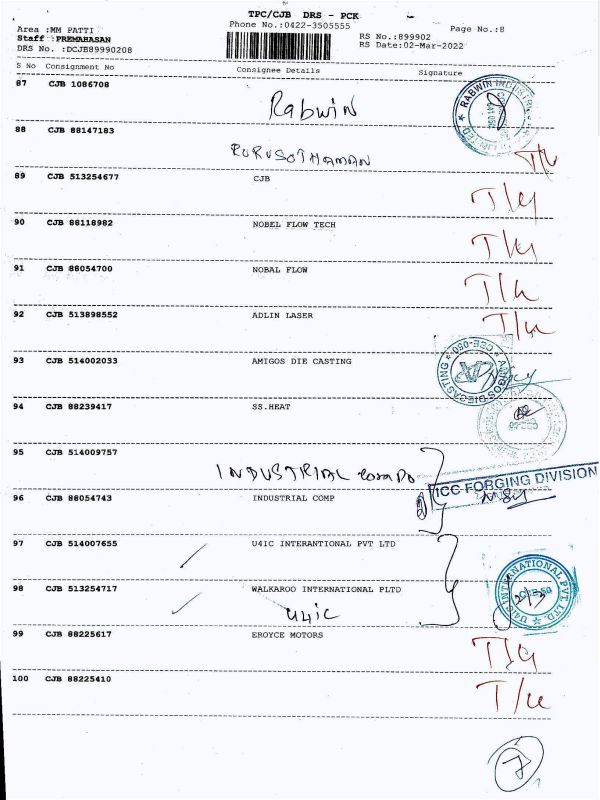 TPC/CJB DRS - PCK
Phone No.:0422-3505555
Page No.:8
Area :MM PATTI
Staff :PREMAHASAN
DRS No. :DCJB89990208
RS No.:899902
RS Date:02-Mar-2022
S No Consignment No Consignee Details Signature
87 CJB 1086708 Rabwin
88 CJB 88147183 PURUSOTHAMAN
89 CJB 513254677 CJB
90 CJB 88118982 NOBEL FLOW TECH
91 CJB 88054700 NOBAL FLOW
92 CJB 513898552 ADLIN LASER
93 CJB 514002033 AMIGOS DIE CASTING
AMIGOS DIECASTING ★ CBE-050
94 CJB 88239417 SS.HEAT
95 CJB 514009757 INDUSTRIAL
ICC FORGING DIVISION
96 CJB 88054743 INDUSTRIAL COMP
97 CJB 514007655 U4IC INTERANTIONAL PVT LTD
98 CJB 513254717 WALKAROO INTERNATIONAL PLTD
U4ic
U4IC INTERNATIONAL PVT LTD. ★
99 CJB 88225617 EROYCE MOTORS
100 CJB 88225410
7